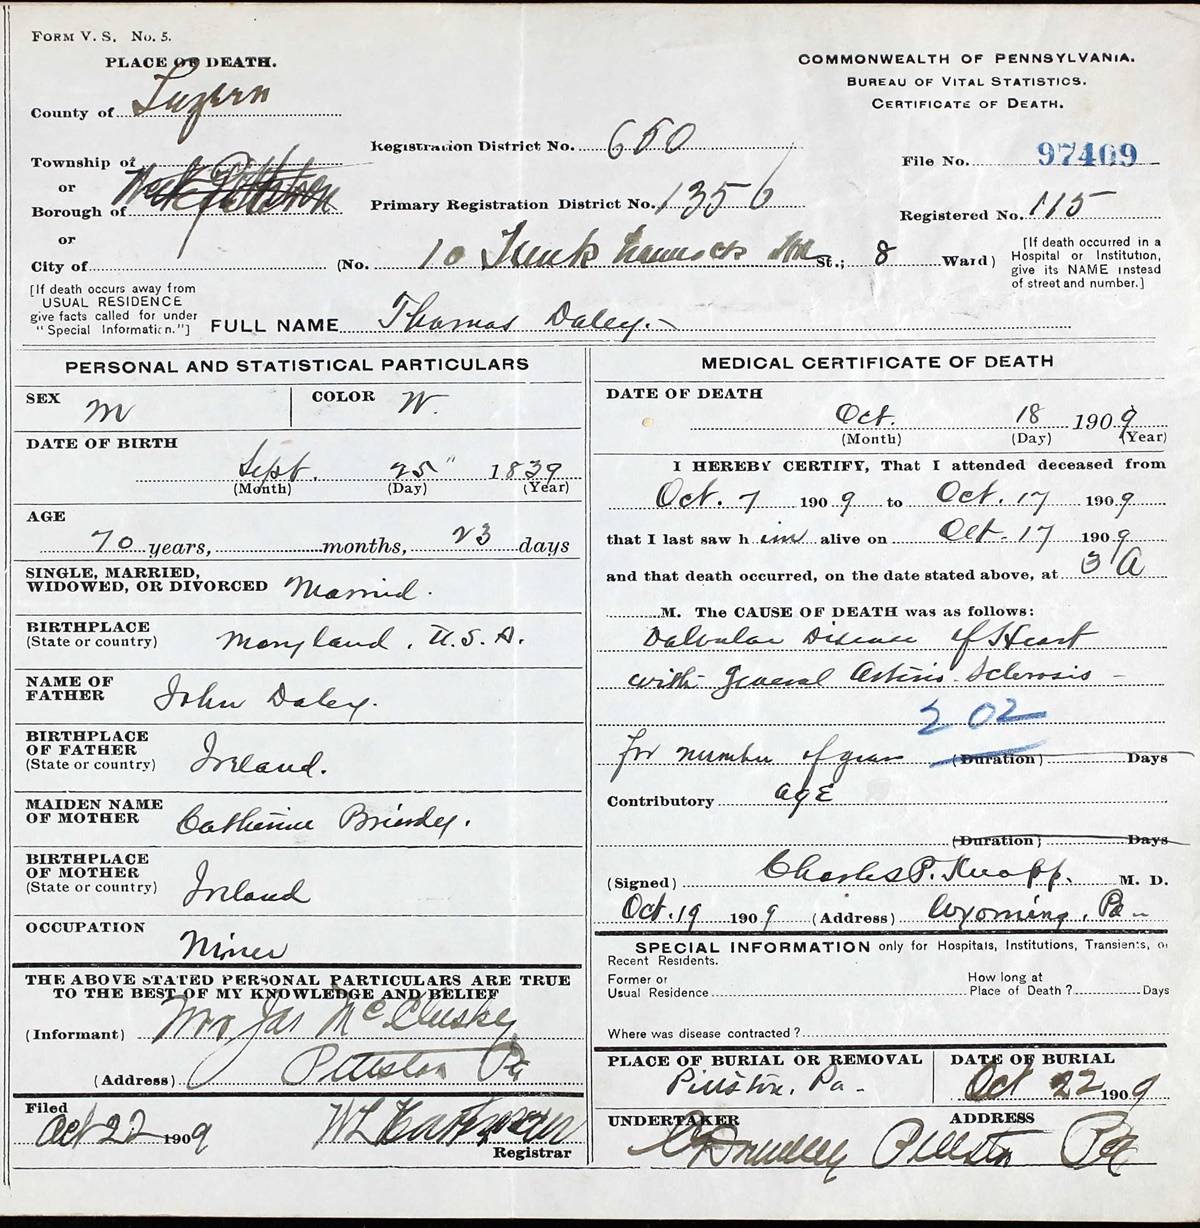 FORM V. S. No. 5.
PLACE OF DEATH.
County of Luzern
Township of
or
Borough of West Pittston
or
City of
[If death occurs away from
USUAL RESIDENCE
give facts called for under
"Special Information."]
COMMONWEALTH OF PENNSYLVANIA.
BUREAU OF VITAL STATISTICS.
CERTIFICATE OF DEATH.
Registration District No. 650
File No. 97409
Primary Registration District No. 1356
Registered No. 115
(No. 10 St.; 8 Ward)
[If death occurred in a
Hospital or Institution,
give its NAME instead
of street and number.]
FULL NAME Thomas Daley.
PERSONAL AND STATISTICAL PARTICULARS
SEX M
COLOR W.
DATE OF BIRTH
Sept. 25" 1839
(Month) (Day) (Year)
AGE
70 years, months, 23 days
SINGLE, MARRIED,
WIDOWED, OR DIVORCED Married.
BIRTHPLACE
(State or country) Maryland, U.S.A.
NAME OF
FATHER John Daley.
BIRTHPLACE
OF FATHER
(State or country) Ireland.
MAIDEN NAME
OF MOTHER Catherine
BIRTHPLACE
OF MOTHER
(State or country) Ireland
OCCUPATION
Miner
THE ABOVE STATED PERSONAL PARTICULARS ARE TRUE
TO THE BEST OF MY KNOWLEDGE AND BELIEF
(Informant) Mrs Jas McCluskey
(Address) Pittston Pa
Filed
Oct 22 1909
Registrar
MEDICAL CERTIFICATE OF DEATH
DATE OF DEATH
Oct. 18 1909
(Month) (Day) (Year)
I HEREBY CERTIFY, That I attended deceased from
Oct. 7 1909 to Oct. 17 1909
that I last saw h im alive on Oct. 17 1909
and that death occurred, on the date stated above, at 3 A
M. The CAUSE OF DEATH was as follows:
Valvular Disease of Heart
with General Arterio-Sclerosis -
202
for number of years (Duration) Days
Contributory age
(Duration) Days
(Signed) Charles P. Knapp. M. D.
Oct. 19 1909 (Address) Wyoming, Pa -
SPECIAL INFORMATION only for Hospitals, Institutions, Transients, or
Recent Residents.
Former or
Usual Residence
How long at
Place of Death? Days
Where was disease contracted?
PLACE OF BURIAL OR REMOVAL
Pittston, Pa -
DATE OF BURIAL
Oct 22 1909
UNDERTAKER
ADDRESS
Pittston Pa